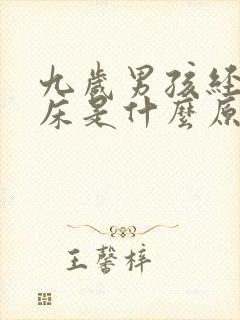 九歲男孩經
床是什麼原
王馨梓